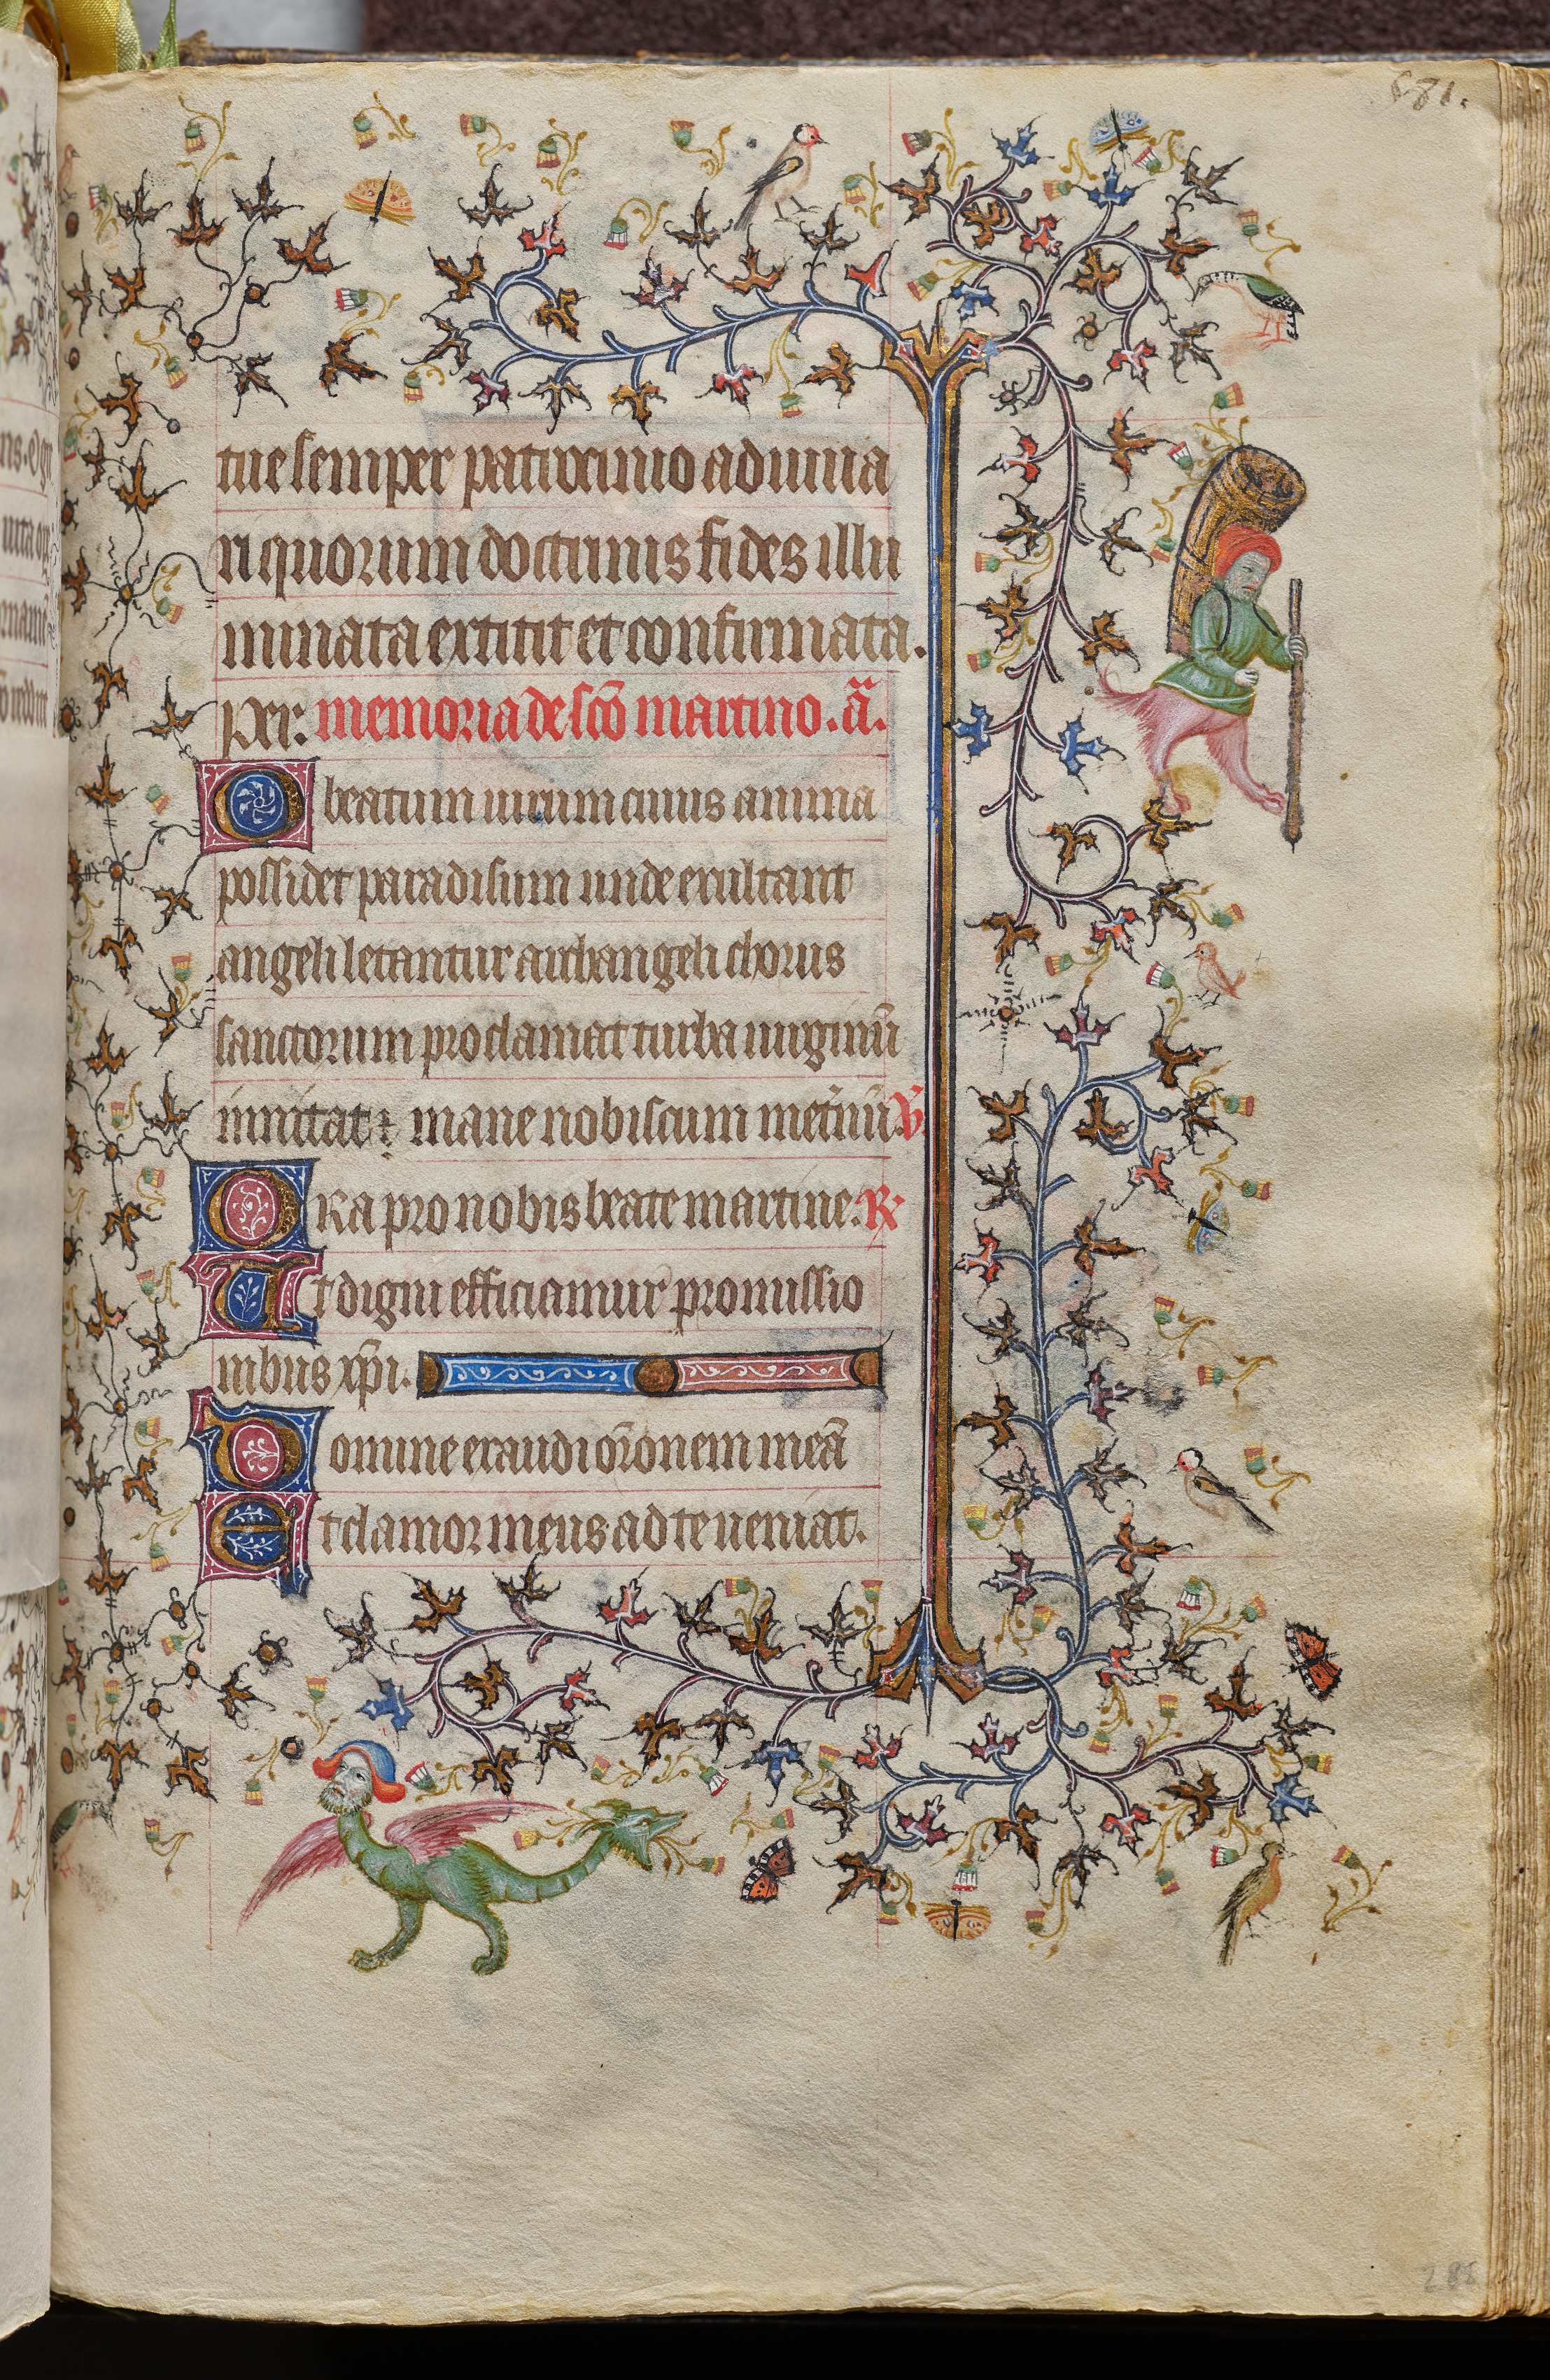 581.
tue semper patrocinio adiuua
ri quorum doctrinis fides illu
minata extitit et confirmata.
Per: memoria de scō martino. ā.
O beatum uirum cuius anima
possidet paradisum unde exultant
angeli letantur archangeli chorus
sanctorum proclamat turba uirginū
inuitat: mane nobiscum metnū. V̄
ORa pro nobis beate martine. R:
Ut digni efficiamur promissio
nibus xp̄i.
Domine exaudi or̄onem meā
Et clamor meus ad te ueniat.